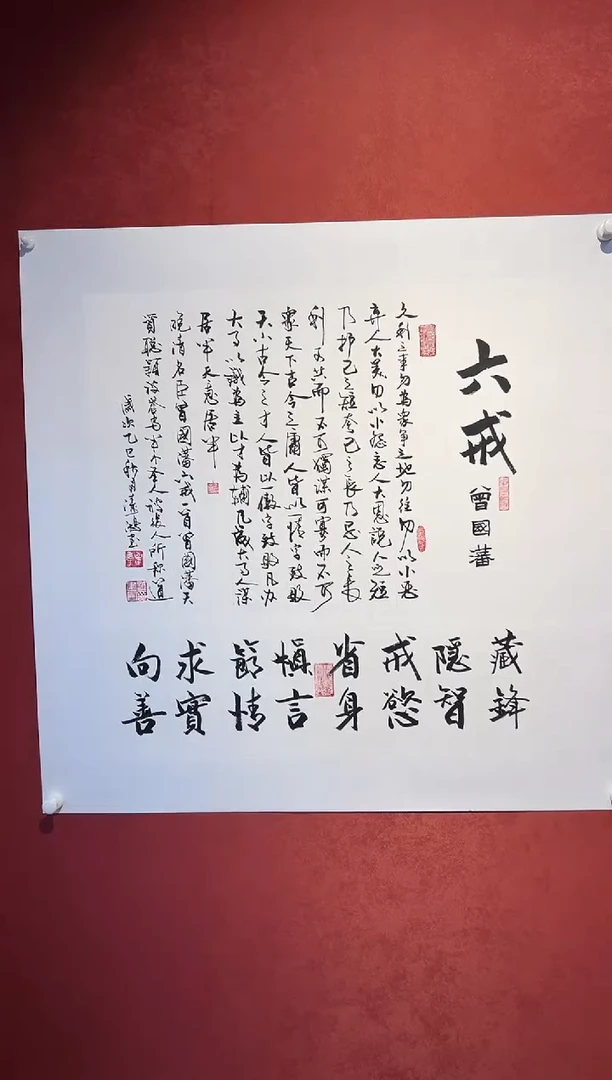 六戒
曾國藩
久利之事勿為眾爭之地勿往勿以小惡
弃人大美勿以小怨忘人大恩說人之短
乃护己之短夸己之長乃忌人之長
利可共而不可獨謀可寡而不可
眾天下古今之庸人皆以一惰字致敗
天下古今之才人皆以一傲字致敗凡办
大事以識為主以才為輔凡成大事人謀
居半天意居半
晚清名臣曾國藩六戒一首曾國藩天
資聰穎 聖人 後人所称道
歲次乙巳秋月
藏鋒
隱智
戒慾
省身
慎言
節情
求實
向善